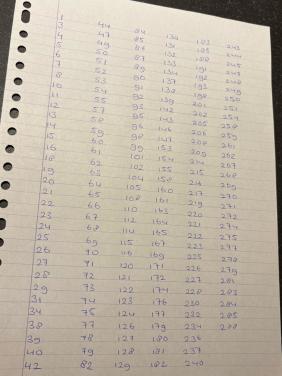 1
3 44 84 130 183 243
4 47 85 131 185 244
5 49 86 132 188 245
6 50 87 133 191 246
7 51 89 134 192 248
8 52 90 137 195 249
10 54 91 138 198 250
11 55 92 139 201 251
12 57 93 142 202 254
13 58 95 143 205 258
14 59 96 146 206 259
15 60 98 147 208 261
16 61 99 153 209 262
18 62 101 154 214 267
19 63 102 155 215 268
20 64 104 158 216 269
21 65 105 160 217 270
22 66 108 161 219 271
23 67 110 163 220 272
24 68 112 164 221 274
25 69 114 165 222 275
26 70 115 167 223 277
27 71 116 169 225 278
28 72 120 171 226 279
29 73 121 172 227 281
31 74 122 174 228 283
34 75 123 176 230 284
38 77 124 177 232 285
39 78 126 179 234 288
40 79 127 180 236
42 82 128 181 237
129 182 240